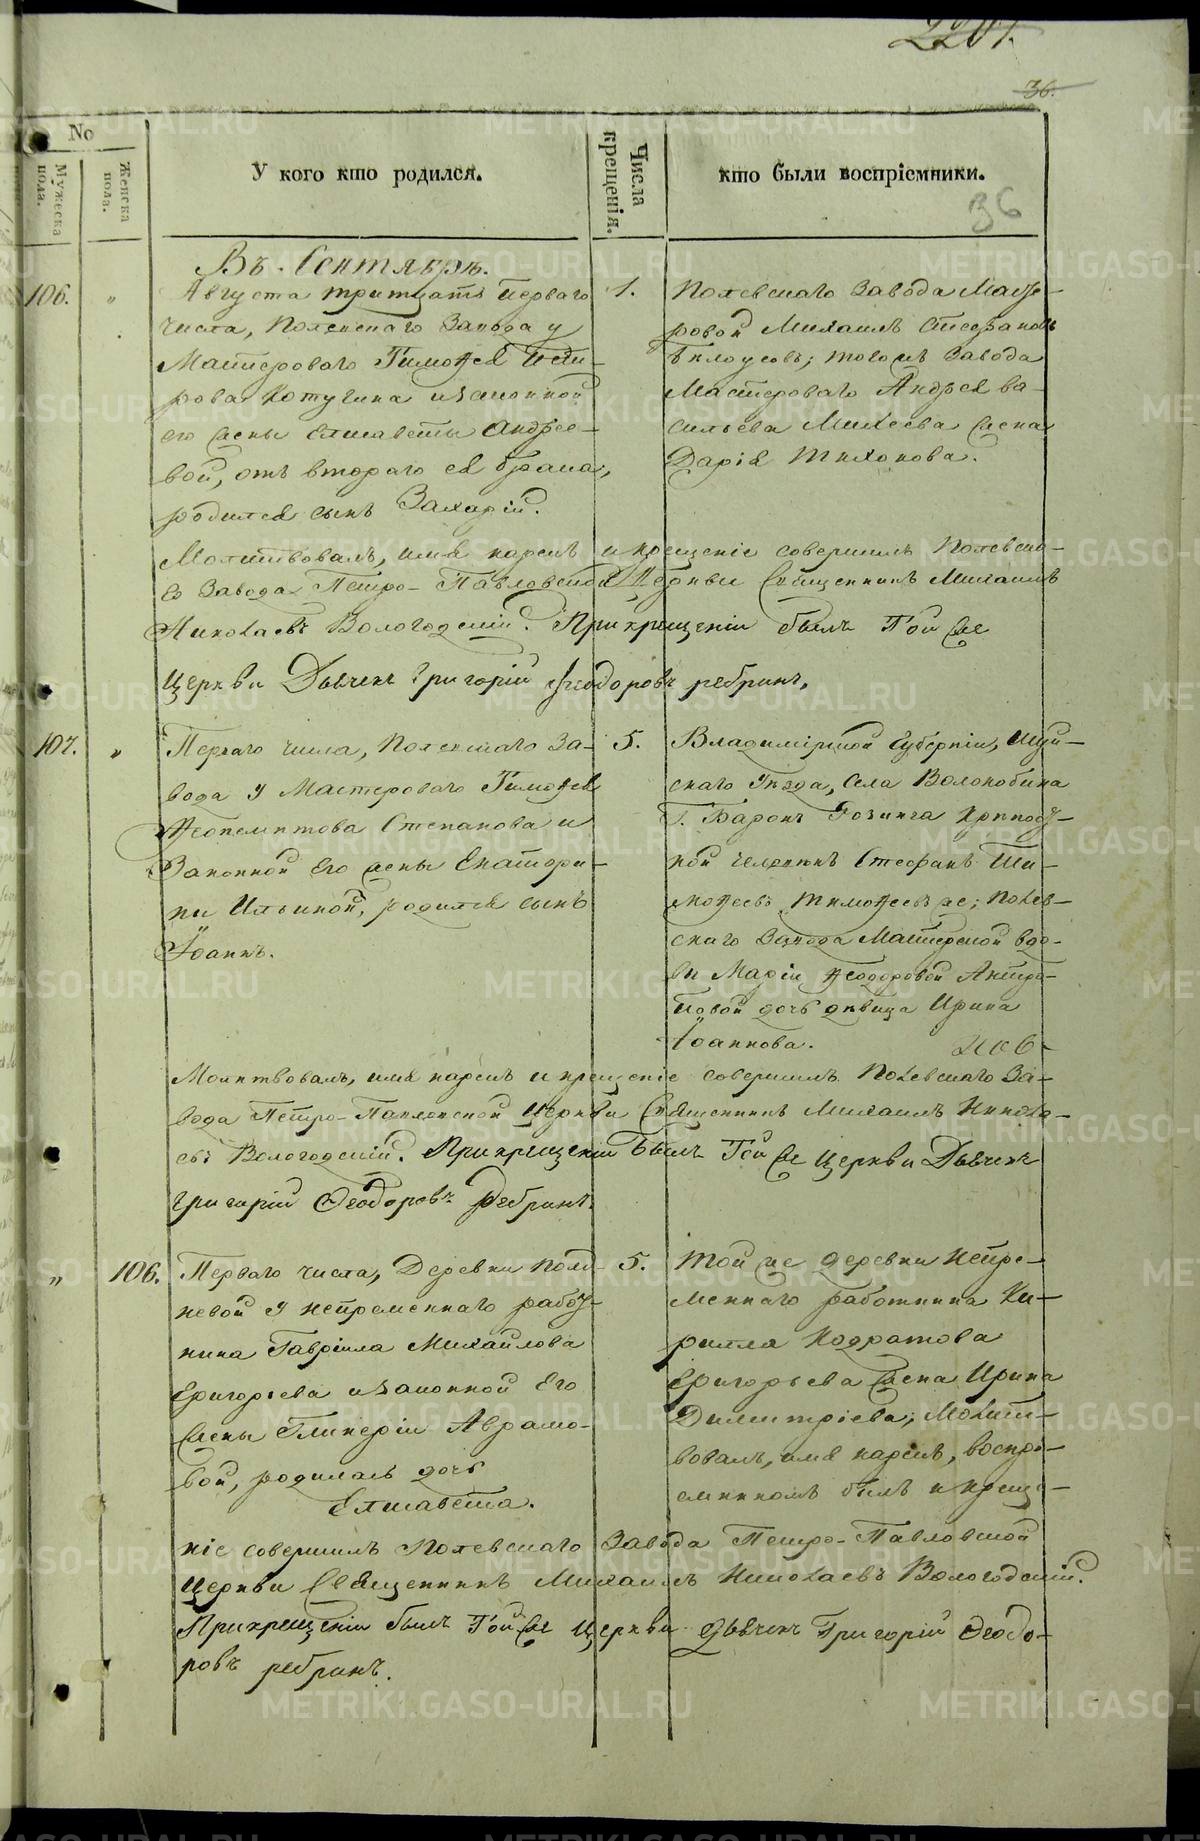 36.
№
Мужеска пола.
Женска пола.
У кого кто родился.
Числа крещенія.
кто были воспріемники.
36
Въ Сентябрѣ.
106.
"
Августа тритцать перваго
числа, Полевскаго Завода у
Мастероваго Тимоѳея
рова Котугина и законной
его жены Елисаветы Андрее-
вой, отъ втораго ея брака,
родился сынъ Захарій.
1.
Полевскаго Завода Масте-
ровой Михаилъ Стефановъ
Бѣлоусовъ; того жъ Завода
Мастероваго Андрея Ва-
сильева Михеева жена
Дарія Тихонова.
Молитвовалъ, имя нарекъ и крещеніе совершилъ Полевска-
го Завода Петро-Павловской Церкви Священникъ Михаилъ
Николаевъ Вологодскій. При крещеніи былъ Той же
Церкви Дьячекъ Григорій Ѳеодоровъ Ребринъ.
107.
"
Перваго числа, Полевскаго За-
вода у Мастероваго Тимоѳея
Ѳеопемптова Степанова и
Законной Его жены Екатери-
ны Ильиной, родился сынъ
Іоаннъ.
5.
Владимірской Губерніи, Шуй-
скаго Уѣзда, Села Волокобина
Г. Баронъ Розинга Крѣпост-
ной человекъ Стефанъ Ти-
моѳеевъ Тимоѳеевъ же; Полев-
скаго Завода Мастерской вдо-
вы Маріи Ѳеодоровой Антро-
повой дочь дѣвица Ирина
Іоаннова.
Молитвовалъ, имя нарекъ и крещеніе совершилъ Полевскаго За-
вода Петро-Павловской Церкви Священникъ Михаилъ Никола-
евъ Вологодскій. При крещеніи былъ Той же Церкви Дьячекъ
Григорій Ѳеодоровъ Ребринъ.
"
106.
Перваго числа, Деревни Полд-
невой у непременнаго работ-
ника Гавріила Михайлова
Григорьева и законной Его
жены Гликеріи Аврамо-
вой, родилась дочь
Елисавета.
5.
Той же деревни Непре-
меннаго работника Ки-
рилла Кодратова
Григорьева жена Ирина
Димитріева; Молит-
вовалъ, имя нарекъ, воспрі-
емникомъ былъ и креще-
ніе совершилъ Полевскаго Завода Петро-Павловской
Церкви Священникъ Михаилъ Николаевъ Вологодскій.
При крещеніи былъ Той же Церкви Дьячекъ Григорій Ѳеодо-
ровъ Ребринъ.
METRIKI.GASO-URAL.RU